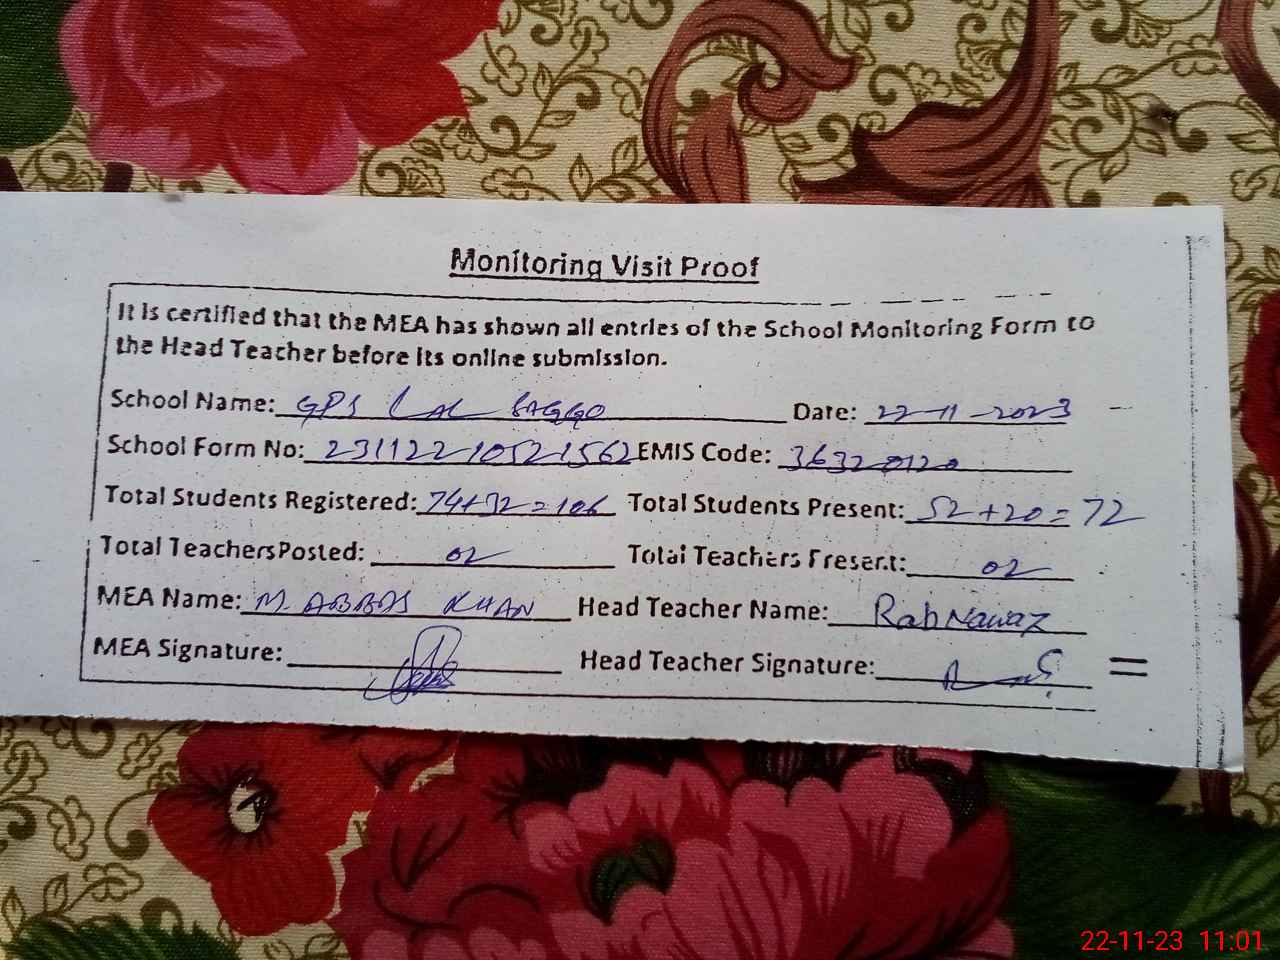 Monitoring Visit Proof
It is certified that the MEA has shown all entries of the School Monitoring Form to
the Head Teacher before its online submission.
School Name: GPS LAL SAGGO Date: 22-11-2023
School Form No: 23112210521562 EMIS Code: 36320120
Total Students Registered: 74+32=106 Total Students Present: 52+20=72
Total Teachers Posted: 02 Total Teachers Present: 02
MEA Name: M. ABBAS KHAN Head Teacher Name: Rab Nawaz
MEA Signature: Head Teacher Signature:
22-11-23 11:01